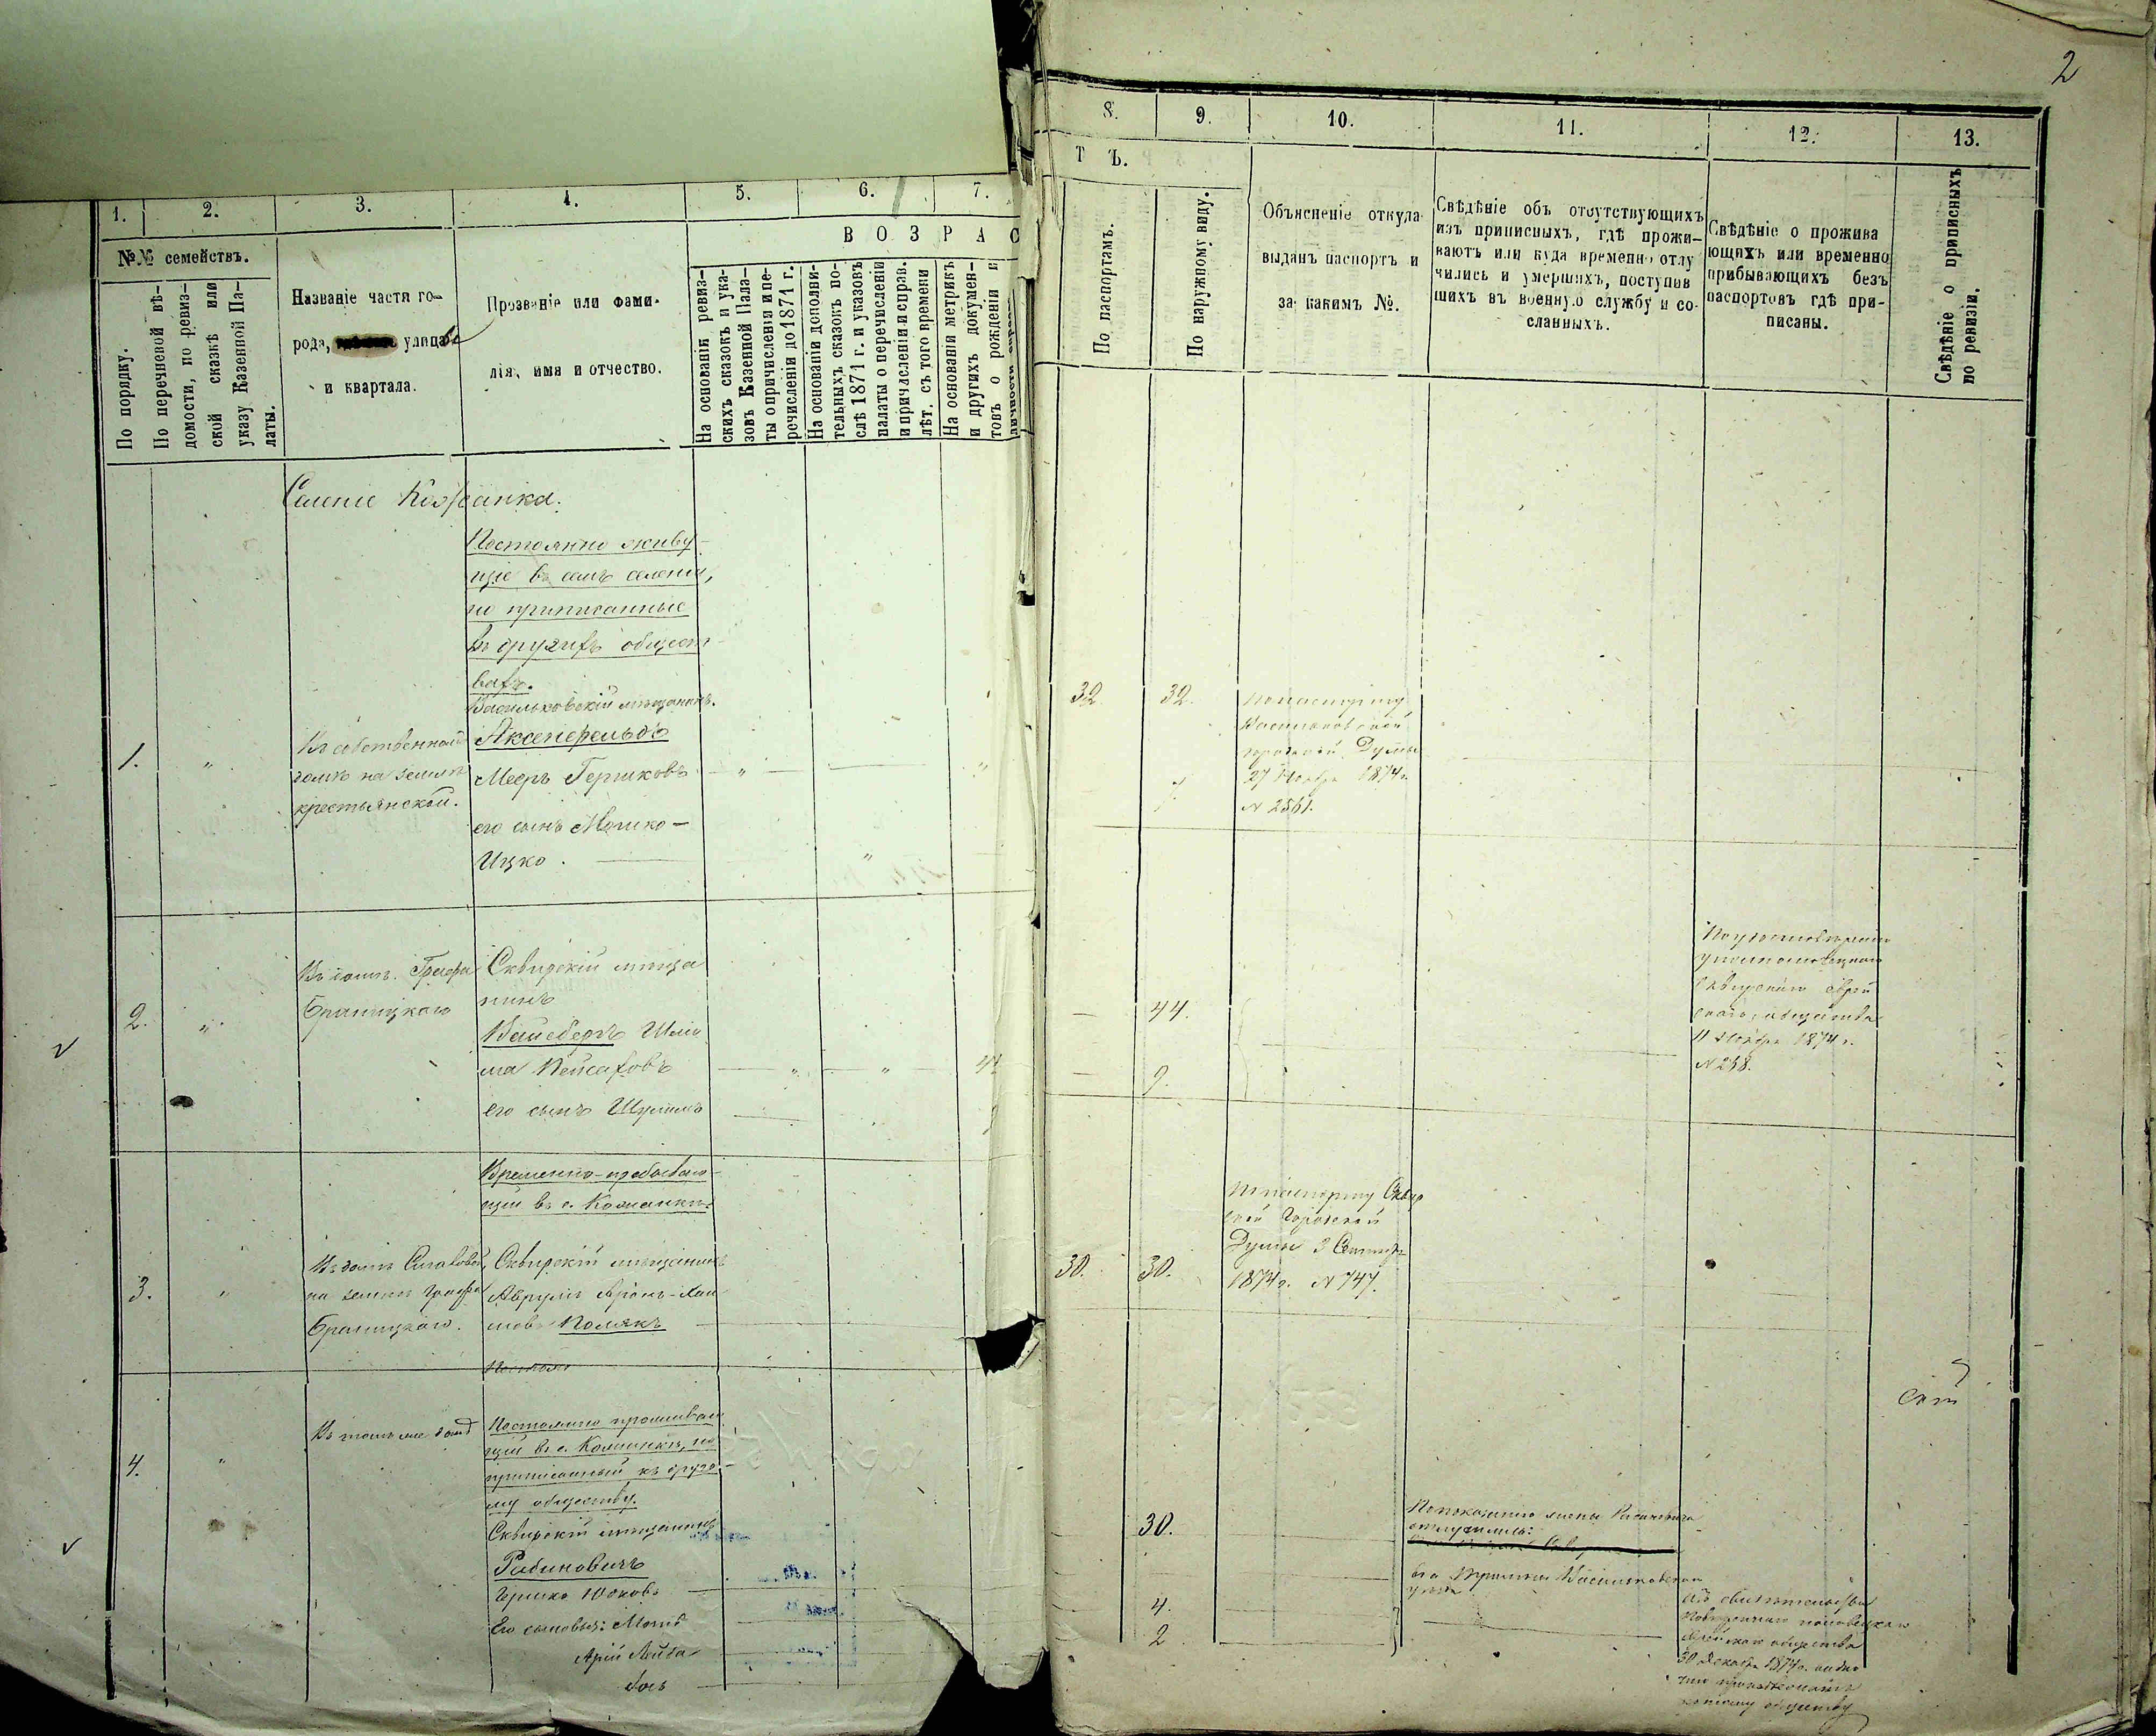 2
1.
2.
3.
4.
5.
6.
7.
8.
9.
10.
11.
12.
13.
№№ семействъ.
По порядку.
По перечневой вѣ-
домости, по ревиз-
ской сказкѣ или
указу Казенной Па-
латы.
Названіе части го-
рода, улицы
и квартала.
Прозваніе или фами-
лія, имя и отчество.
В О З Р А С
Т Ъ.
На основаніи ревиз-
скихъ сказокъ и ука-
зовъ Казенной Пала-
ты о причисленіи и пе-
речисленіи до 1871 г.
На основаніи дополни-
тельныхъ сказокъ по-
слѣ 1871 г. и указовъ
палаты о перечисленіи
и причисленіи и справ.
лѣт. съ того времени
На основаніи метрикъ
и другихъ докумен-
товъ о рожденіи и
По паспортамъ.
По наружному виду.
Объясненіе откуда
выданъ паспортъ и
за какимъ №.
Свѣдѣніе объ отсутствующихъ
изъ приписныхъ, гдѣ прожи-
ваютъ или куда временно отлу
чились и умершихъ, поступив
шихъ въ военную службу и со-
сланныхъ.
Свѣдѣніе о прожива
ющихъ или временно
прибывающихъ безъ
паспортовъ гдѣ при-
писаны.
Свѣдѣніе о приписныхъ
по ревизіи.
Селеніе Кожанка.
Постоянно живу-
щіе въ семъ селеніи,
но приписанные
въ другихъ общест-
вахъ.
Васильковскій мѣщанинъ.
1.
"
Въ собственномъ
домѣ на землѣ
крестьянской.
Аксенфельдъ
Мееръ Гершковъ
его сынъ Мошко-
Ицко.
32
32.
По паспорту
Васильковской
городской Думы
27 Ноября 1874 г.
N 2561.
2.
"
Въ домѣ Графа
Браницкаго
Сквирскій мѣща
нинъ
Вайсбергъ Шлё
ма Пейсаховъ
его сынъ Шулимъ
44.
9.
По удостовѣренію
сквирскаго еврей
скаго общества
11 Ноября 1874 г.
N 238.
Временно-пребываю-
щій въ с. Кожанкѣ
3.
"
на землѣ графа
Браницкаго.
Сквирскій мѣщанинъ
Аврумъ Аронъ-Хаи
мовъ Полякъ
30.
30.
По паспорту Сквир
ской Городской
Думы 3 Сентября
1874 г. N 747.
4.
"
Въ томъ же домѣ
Постоянно проживаю
щій въ с. Кожанкѣ, но
приписанный къ друго-
му обществу.
Сквирскій мѣщанинъ
Рабиновичъ
Гершко Юсковъ
Его сыновья:
Арій Лейба
30.
4.
2
По показанію жены Рабиновича
Еврейскаго общества
30 Декабря 1874 г.